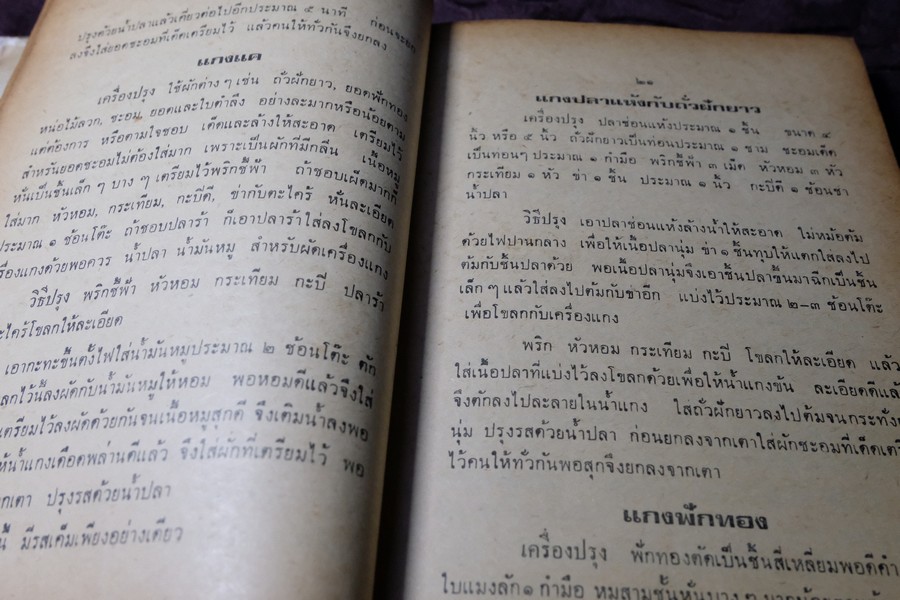 ปรุงด้วยน้ำปลาแล้วเคี่ยวต่อไปอีกประมาณ ๕ นาที ก่อนจะยก
ลงจึงใส่ยอดชะอมที่เด็ดเตรียมไว้ แล้วคนให้ทั่วกันจึงยกลง
แกงแค
เครื่องปรุง ใช้ผักต่าง ๆ เช่น ถั่วฝักยาว, ยอดฟักทอง
หน่อไม้ลวก, ชะอม, ยอดและใบตำลึง อย่างละมากหรือน้อยตาม
แต่ต้องการ หรือตามใจชอบ เด็ดและล้างให้สะอาด เตรียมไว้
สำหรับยอดชะอมไม่ต้องใส่มาก เพราะเป็นผักที่มีกลิ่น เนื้อหมู
หั่นเป็นชิ้นเล็ก ๆ บาง ๆ เตรียมไว้พริกชี้ฟ้า ถ้าชอบเผ็ดมากก็
ใส่มาก หัวหอม, กระเทียม, กะปิดี, ข่ากับตะไคร้ หั่นละเอียด
ประมาณ ๑ ช้อนโต๊ะ ถ้าชอบปลาร้า ก็เอาปลาร้าใส่ลงโขลกกับ
เครื่องแกงด้วยพอควร น้ำปลา น้ำมันหมู สำหรับผัดเครื่องแกง
วิธีปรุง พริกชี้ฟ้า หัวหอม กระเทียม กะปิ ปลาร้า
ตะไคร้โขลกให้ละเอียด
เอากะทะขึ้นตั้งไฟใส่น้ำมันหมูประมาณ ๒ ช้อนโต๊ะ ตัก
ลกไว้นั้นลงผัดกับน้ำมันหมูให้หอม พอหอมดีแล้วจึงใส่
เตรียมไว้ลงผัดด้วยกันจนเนื้อหมูสุกดี จึงเติมน้ำลงพอ
ห้น้ำแกงเดือดพล่านดีแล้ว จึงใส่ผักที่เตรียมไว้ พอ
กเตา ปรุงรสด้วยน้ำปลา
นี้ มีรสเค็มเพียงอย่างเดียว
๒๑
แกงปลาแห้งกับถั่วฝักยาว
เครื่องปรุง ปลาช่อนแห้งประมาณ ๑ ชิ้น ขนาด ๔
นิ้ว หรือ ๕ นิ้ว ถั่วฝักยาวเป็นท่อนประมาณ ๑ ชาม ชะอมเด็ด
เป็นท่อนๆ ประมาณ ๑ กำมือ พริกชี้ฟ้า ๓ เม็ด หัวหอม ๓ หัว
กระเทียม ๑ หัว ข่า ๑ ชิ้น ประมาณ ๑ นิ้ว กะปิดี ๑ ช้อนชา
น้ำปลา
วิธีปรุง เอาปลาช่อนแห้งล้างน้ำให้สะอาด ใส่หม้อต้ม
ด้วยไฟปานกลาง เพื่อให้เนื้อปลานุ่ม ข่า ๑ ชิ้นทุบให้แตกใส่ลงไป
ต้มกับชิ้นปลาด้วย พอเนื้อปลานุ่มจึงเอาชิ้นปลาขึ้นมาฉีกเป็นชิ้น
เล็ก ๆ แล้วใส่ลงไปต้มกับข่าอีก แบ่งไว้ประมาณ ๒-๓ ช้อนโต๊ะ
เพื่อโขลกกับเครื่องแกง
พริก หัวหอม กระเทียม กะปิ โขลกให้ละเอียด แล้ว
ใส่เนื้อปลาที่แบ่งไว้ลงโขลกด้วยเพื่อให้น้ำแกงข้น ละเอียดดีแล้
จึงตักลงไปละลายในน้ำแกง ใส่ถั่วฝักยาวลงไปต้มจนกระทั่งถ
นุ่ม ปรุงรสด้วยน้ำปลา ก่อนยกลงจากเตาใส่ผักชะอมที่เด็ดเตรี
ไว้คนให้ทั่วกันพอสุกจึงยกลงจากเตา
แกงฟักทอง
เครื่องปรุง ฟักทองตัดเป็นชิ้นสี่เหลี่ยมพอดีคำ
ใบแมงลัก ๑ กำมือ หมูสามชั้นหั่นบาง ๆ